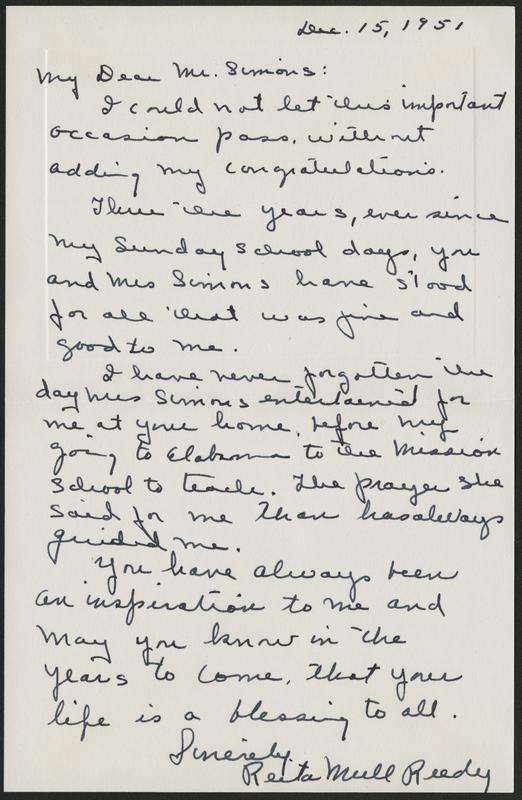 Dec. 15, 1951
My Dear Mr. Simons:
I could not let this important
occasion pass, without
adding my congratulations.
Thru the years, ever since
my Sunday School days, you
and Mrs Simons have stood
for all that was fine and
good to me.
I have never forgotten the
day Mrs Simons entertained for
me at your home, before my
going to Alabama to the Mission
School to teach. The prayer she
said for me then has always
guided me.
You have always been
an inspiration to me and
may you know in the
years to come, that your
life is a blessing to all.
Sincerely
Reita Mull Reedy